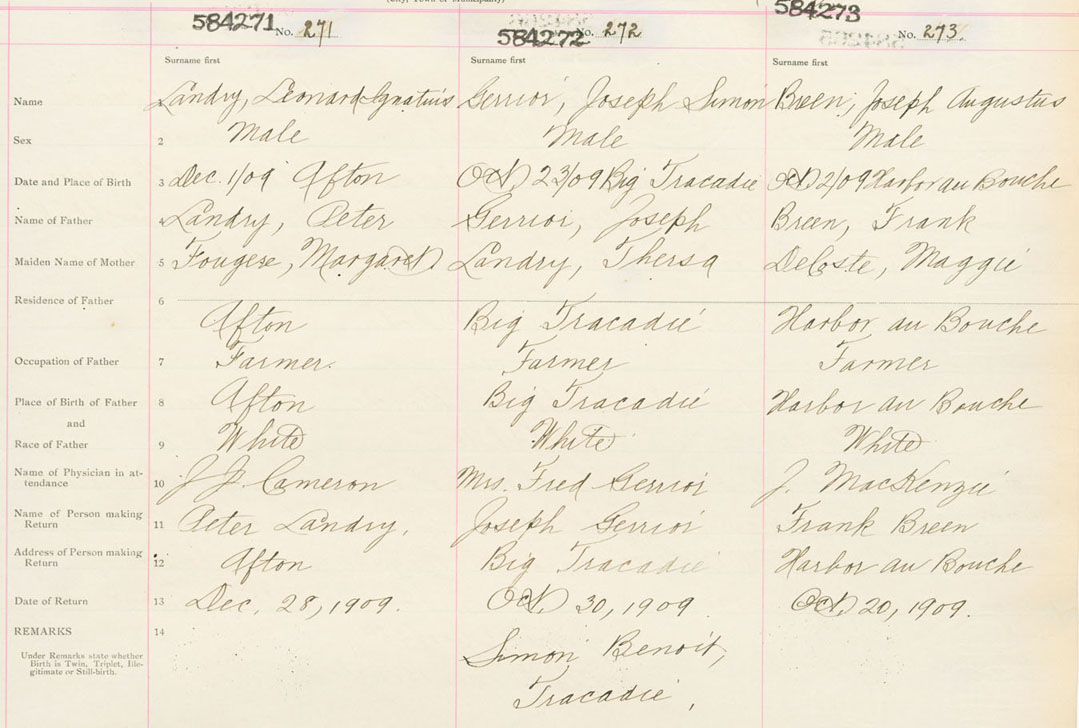 (City, Town or Municipality)
584271 No. 271
584272 No. 272
584273 No. 273
Surname first Surname first Surname first
Name Landry, Leonard Ignatius Gerrior, Joseph Simon Breen, Joseph Augustus
Sex 2 Male Male Male
Date and Place of Birth 3 Dec. 1/09 Afton Oct 23/09 Big Tracadie Oct 2/09 Harbor au Bouche
Name of Father 4 Landry, Peter Gerrior, Joseph Breen, Frank
Maiden Name of Mother 5 Fougese, Margaret Landry, Thersa DeCoste, Maggie
Residence of Father 6
Afton Big Tracadie Harbor au Bouche
Occupation of Father 7 Farmer. Farmer Farmer
Place of Birth of Father 8 Afton Big Tracadie Harbor au Bouche
and
Race of Father 9 White White White
Name of Physician in at-
tendance 10 J J. Cameron Mrs. Fred Gerrior J. MacKenzie
Name of Person making
Return 11 Peter Landry. Joseph Gerrior Frank Breen
Address of Person making
Return 12 Afton Big Tracadie Harbor au Bouche
Date of Return 13 Dec. 28, 1909. Oct 30, 1909 Oct 20, 1909.
REMARKS 14
Under Remarks state whether
Birth is Twin, Triplet, Ille-
gitimate or Still-birth.
Simon Benoit,
Tracadie,